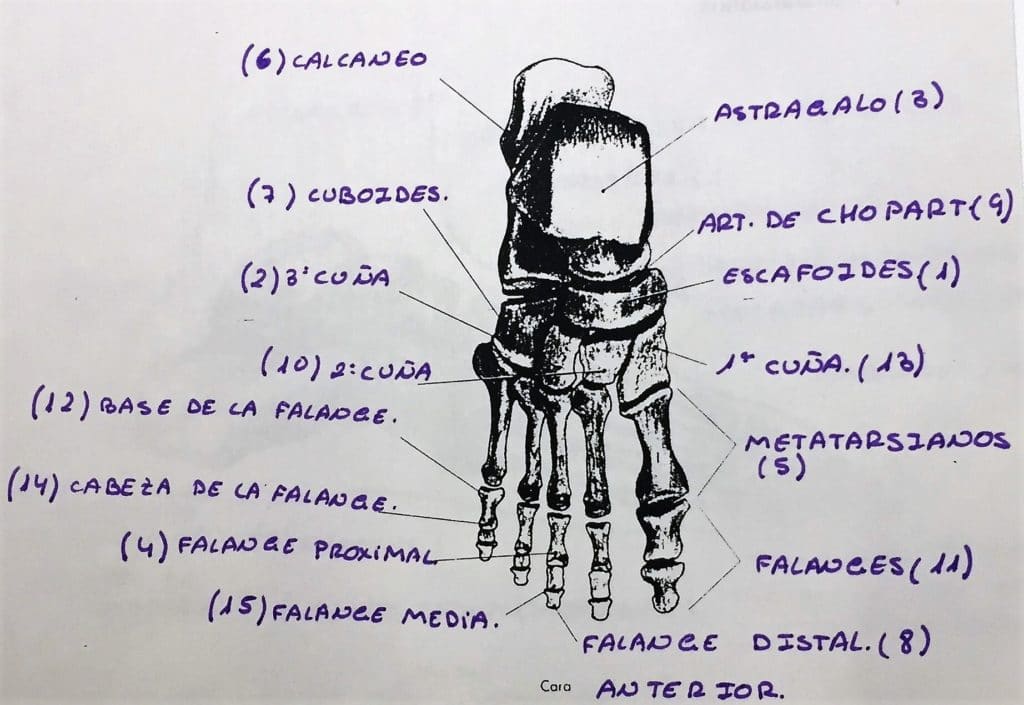 (6) CALCANEO
ASTRAGALO (3)
(7) CUBOIDES.
ART. DE CHOPART (9)
(2) 3ª CUÑA
ESCAFOIDES (1)
(10) 2ª CUÑA
1ª CUÑA. (13)
(12) BASE DE LA FALANGE.
METATARSIANOS
(5)
(14) CABEZA DE LA FALANGE.
(4) FALANGE PROXIMAL
FALANGES (11)
(15) FALANGE MEDIA.
FALANGE DISTAL. (8)
Cara ANTERIOR.